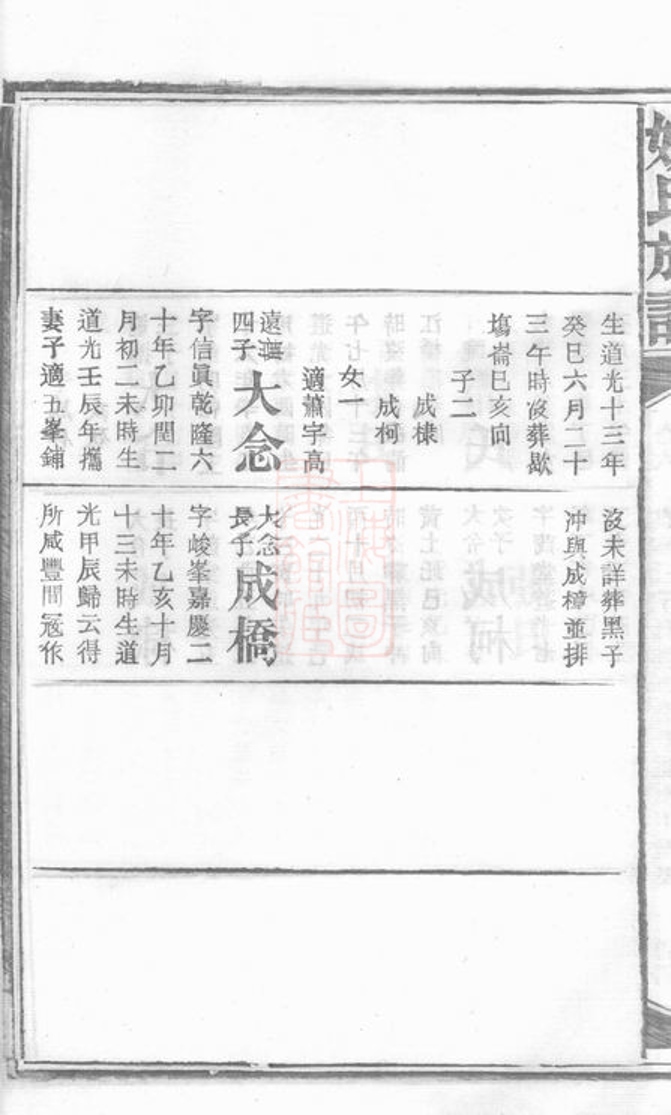 姚氏族譜
生道光十三年
癸巳六月二十
三午時歿葬歇
塲崙巳亥向
子二
成棣
成柯
女一
適蕭宇高
遠謨四子
大念
字信眞乾隆六
十年乙卯閏二
月初二未時生
道光壬辰年攜
妻子適五峯鋪
沒未詳葬黑子
沖與成樟並排
大念長子
成橋
字峻峯嘉慶二
十年乙亥十月
十三未時生道
光甲辰歸云得
所咸豐間冦作